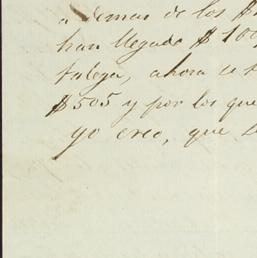 a demas de los $
han llegado $ 100
talega, ahora
$505 y por los que
yo creo, que